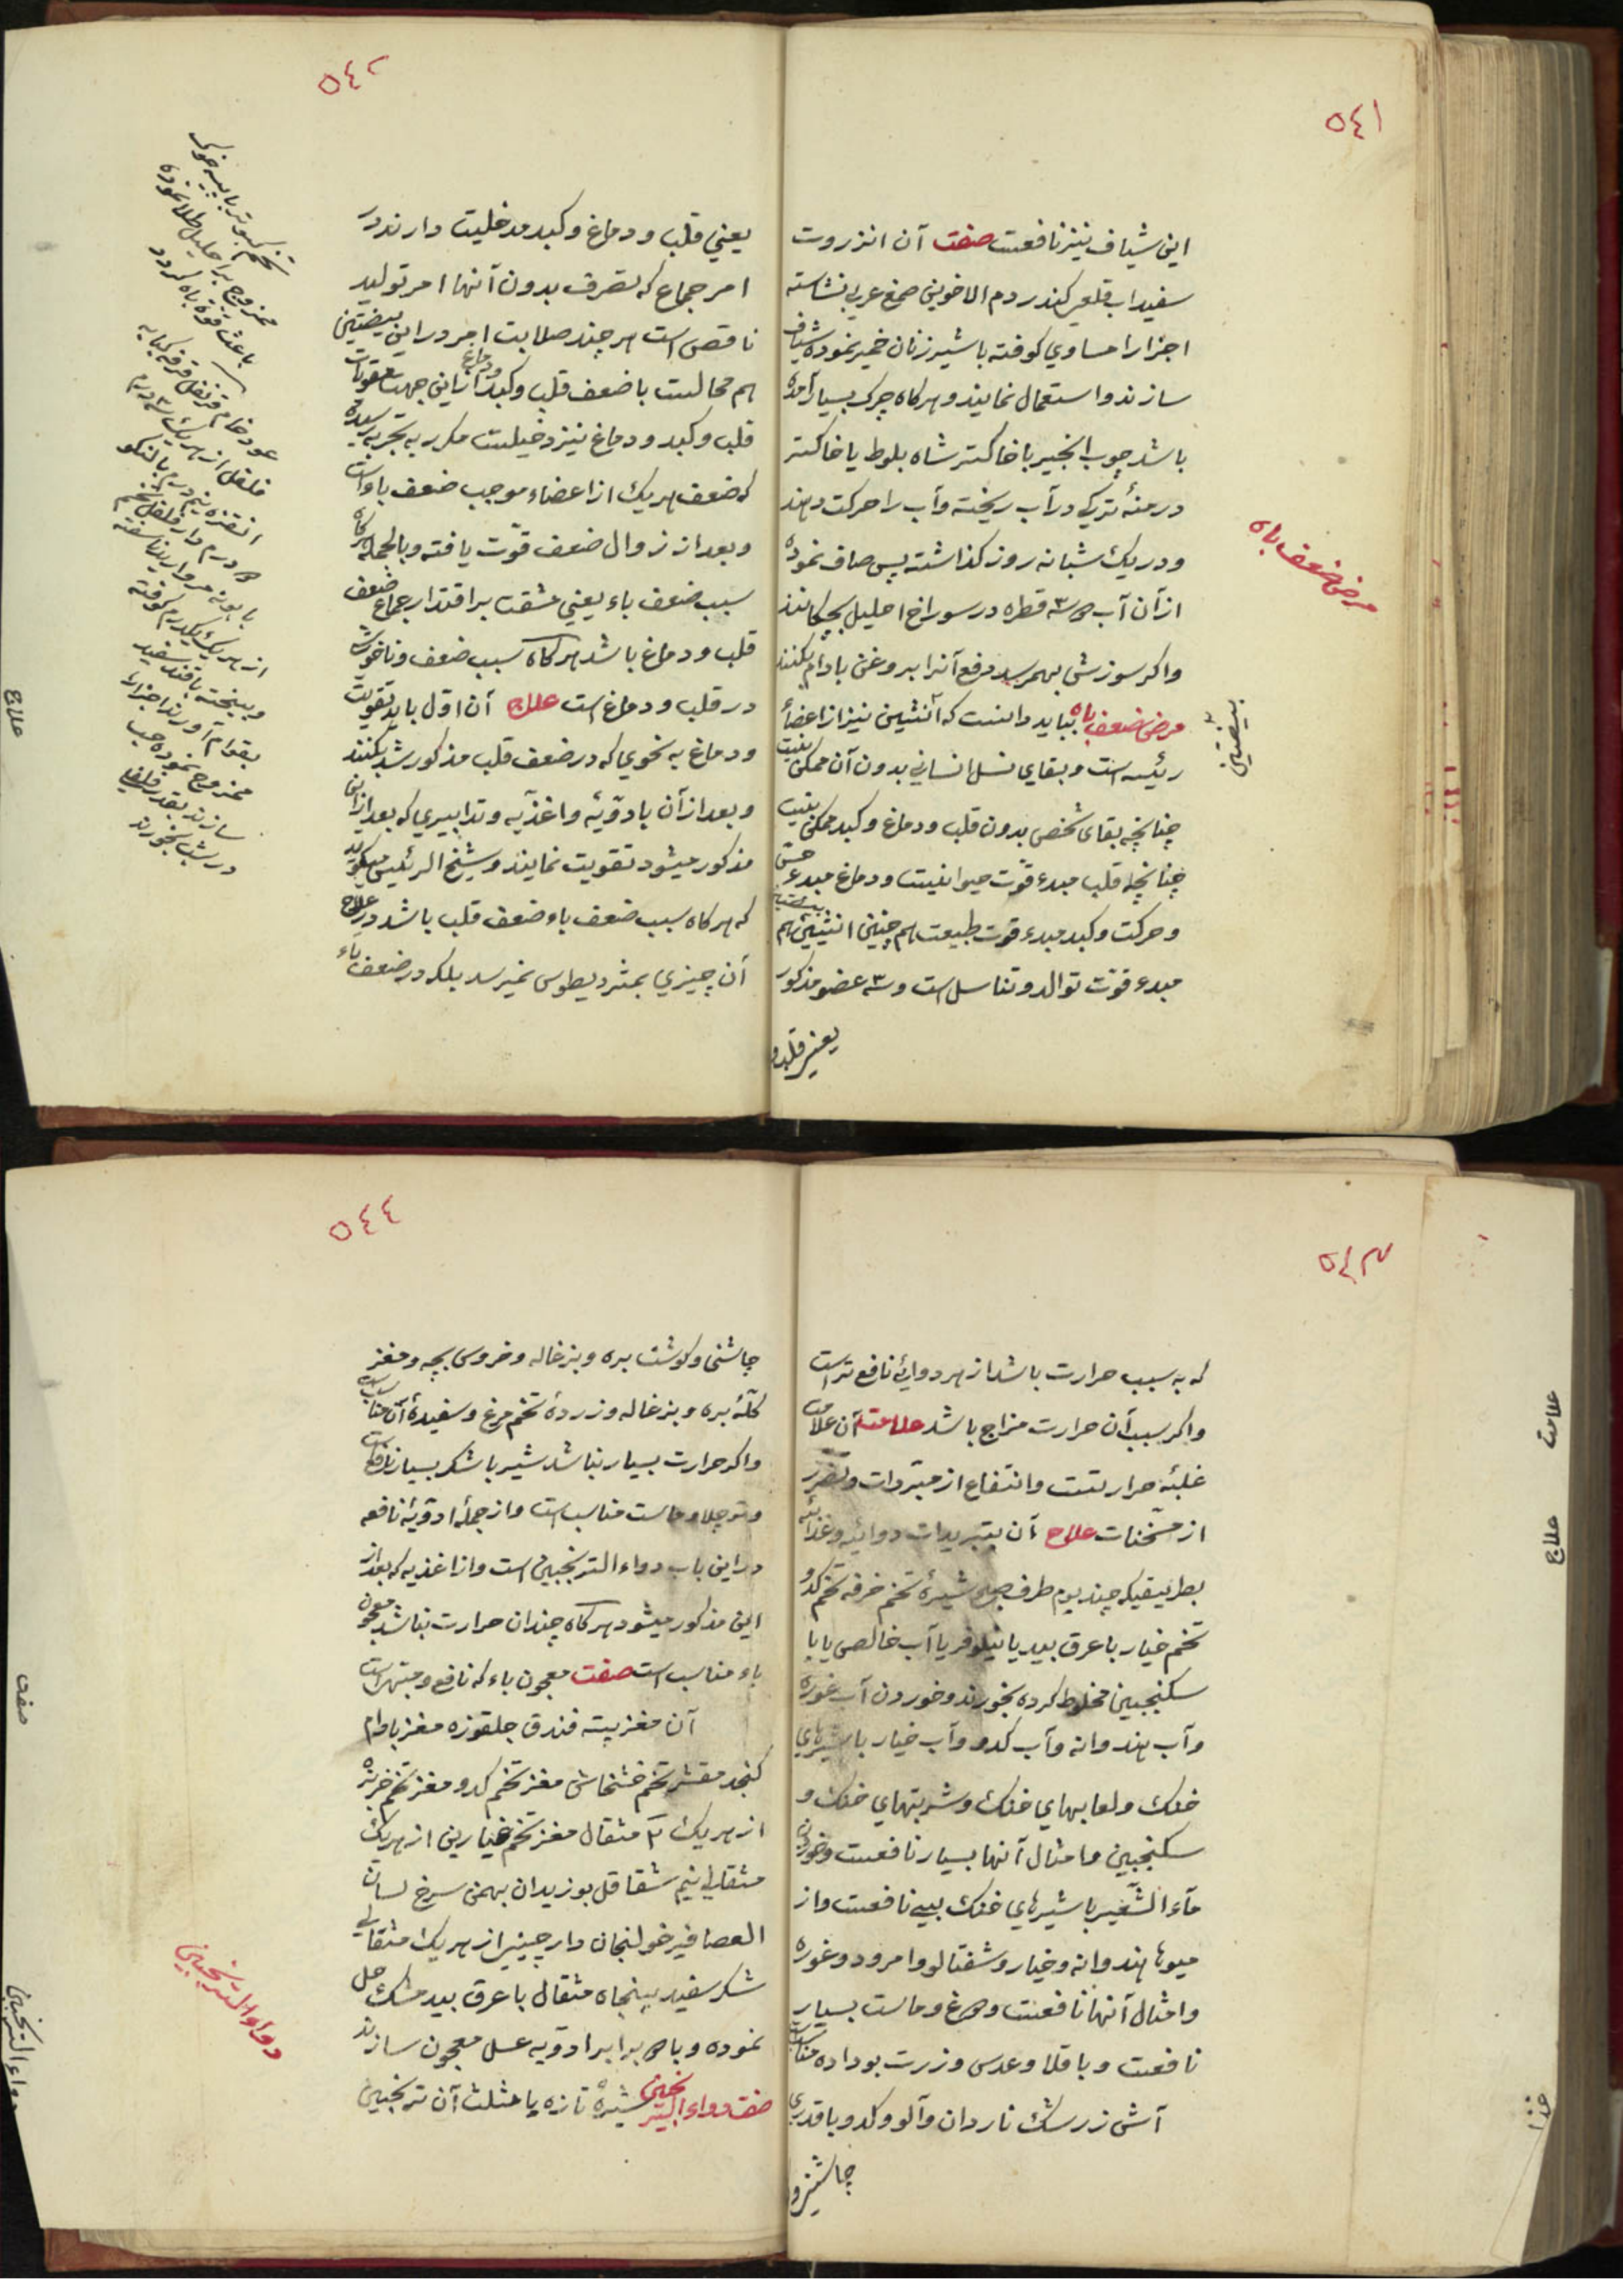 ٥٤١
این شیاف نیز نافعست صفت آن انزروت
سفیداب قلعی کندر دم الاخوین صمغ عربی نشاسته
اجزا را مساوی کوفته با شیر زنان خمیر نموده شیاف
سازند و استعمال نمایند و هرکاه چرک بسیار آمده
باشد چوب انجیر با خاکستر شاه بلوط یا خاکستر
درمنهٔ ترکی در آب ریخته و آب را حرکت دهند
و در یک شبانه روز کذاشته پس صاف نموده
از آن آب ۳ قطره در سوراخ احلیل بچکانند
و اکر سوزشی بهمرسد دفع آنرا بروغن بادام بکنند
مرض ضعف باه بباید دانست که انثیین نیز از اعضاء
رئیسه است و بقای نسل انسانی بدون آن ممکن نیست
چنانچه بقای شخص بدون قلب و دماغ و کبد ممکن نیست
چنانچه قلب مبدء قوت حیوانیست و دماغ مبدء حس
و حرکت و کبد مبدء قوت طبیعت هم چنین انثیین هم
مبدء قوت توالد و تناسل است و ۳ عضو مذکور
یعنی قلب و
مرض ضعف باه
بیضتین
٥٤٢
یعنی قلب و دماغ و کبد مدخلیت دارند در
امر جماع که تصرف بدون آنها امر تولید
ناقص است هر چند صلابت امر در این بیضتین
هم محالست با ضعف قلب و کبد و دماغ از این جهت مقویات
قلب و کبد و دماغ نیز دخیلست مکرر به تجربه رسیده
که ضعف هریک از اعضاء موجب ضعف باه است
و بعد از زوال ضعف قوت یافته و بالجمله هرکاه
سبب ضعف باء یعنی مشقت بر اقتدار جماع ضعف
قلب و دماغ باشد هرکاه سبب ضعف و ناخوشی
در قلب و دماغ است علاج آن اول باید تقویت
و دماغ به نحوی که در ضعف قلب مذکور شد بکنند
و بعد از آن بادویه و اغذیه و تدابیری که بعد از این
مذکور میشود تقویت نمایند و شیخ الرئیس میکوید
که هرکاه سبب ضعف باء ضعف قلب باشد در علاج
آن چیزی بمثرودیطوس نمیرسد بلکه در ضعف باء
تخم کبوتر با پیه خوک
ممزوج بر احلیل طلا نموده
باعث قوة باه کردد
عود خام قرنفل قرفه کبابه
بقوام آورند اجزا را
ممزوج نموده حب
سازند بقدر فلفلی
در شب بخورند
علاج
٥٤٣
که به سبب حرارت باشد از هر دوائی نافع تر است
و اکر سبب آن حرارت مزاج باشد علامت آن علامت
غلبهٔ حرارتست و انتفاع از مبردات و تضرر
از مسخنات علاج آن بتبریدات دوائیه و غذائیه
بطریقیکه چند یوم طرف صبح شیرهٔ تخم خرفه تخم کدو
تخم خیار با عرق بید یا نیلوفر یا آب خالص یا با
سکنجبین مخلوط کرده بخورند و خوردن آب غوره
و آب هندوانه و آب کدو و آب خیار با شیرهای
خنک و لعابهای خنک و شربتهای خنک و
سکنجبین و امثال آنها بسیار نافعست و خوردن
ماء الشعیر با شیرهای خنک بسی نافعست و از
میوها هندوانه و خیار و شفتالو و امرود و غوره
و امثال آنها نافعست و دوغ و ماست بسیار
نافعست و باقلا و عدس و زرت بو داده مناسبست
آش زرشک ناردان و آلو و کدو با قدری
چاشنی و
علامت
علاج
غذا
٥٤٤
چاشنی و کوشت بره و بزغاله و خروس بچه و مغز
کلهٔ بره و بزغاله و زردهٔ تخم مرغ و سفیدهٔ آن مناسب است
و اکر حرارت بسیار نباشد شیر با شکر بسیار نافع است
و نوچلاو ماست مناسب است و از جملهٔ ادویهٔ نافعه
در این باب دواء الترنجبین است و از اغذیه که بعد از
این مذکور میشود هرکاه چندان حرارت نباشد معجون
باء مناسب است صفت معجون باء که نافع و مجرب است
آن مغز پسته فندق جلقوزه مغز بادام
کنجد مقشر تخم خشخاش مغز تخم کدو مغز تخم خربزه
از هریک ۲ مثقال مغز تخم خیارین از هریک
مثقالی نیم شقاقل بوزیدان بهمن سرخ لسان
العصافیر خولنجان دارچینی از هریک مثقالی
شکر سفید پنجاه مثقال با عرق بید مشک حل
نموده و با ۳ برابر ادویه عسل معجون سازند
صفت دواء الترنجبین شیرهٔ تازه با مثلث آن ترنجبین
دواء الترنجبین
صفت
دواء الترنجبین